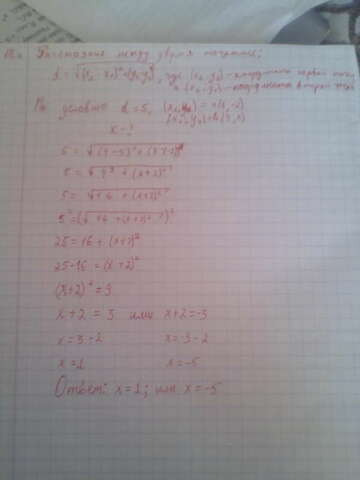 Расстояние между двумя точками;
d = √(x₂ - x₁)² + (y₂ - y₁)², где (x₁, y₁) - координаты первой точки
(x₂, y₂) - координаты второй точки
По условию d = 5, (x₁, y₁) =
x - ?
5 = √(
5 = √4² + (x+2)²
5 = √16 + (x+2)²
5² = (√16 + (x+2)²)²
25 = 16 + (x+2)²
25-16 = (x+2)²
(x+2)² = 9
x+2 = 3 или x+2 = -3
x = 3-2 x = -3-2
x = 1 x = -5
Ответ: x = 1; или x = -5